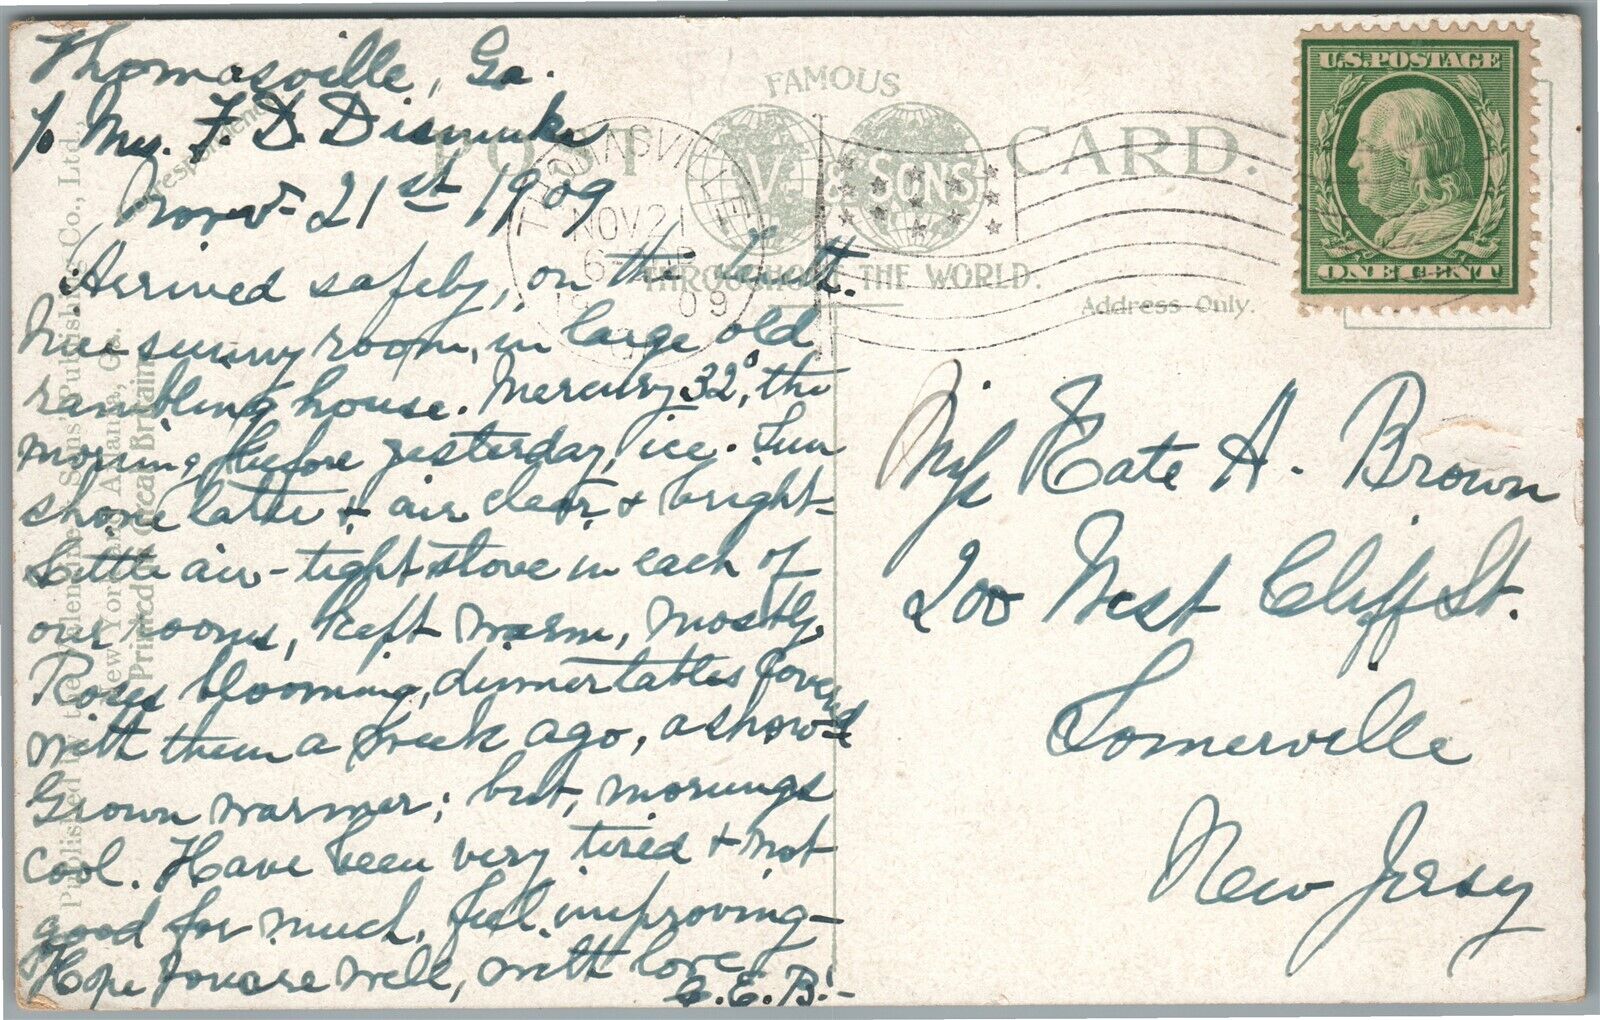 Thomasville, Ga.
% Mrs. F. D. Dismuke
Nov- 21st 1909
Arrived safely, on the
Nice sunny room, in large old
rambling house. Mercury 32°, the
morning before yesterday, ice. Sun
shone latte & air clear, & bright-
Little air-tight stove in each of
our rooms, kept warm, mostly.
Roses blooming, dinner tables covered
with them a week ago, a show-
Grown warmer; but, mornings
cool. Have been very tired & not
good for much, feel improving-
Hope you are well, with love
G. E. B.-
Correspondence
Published by the Valentine & Sons' Publishing Co., Ltd.,
New York
Printed in Great Britain
FAMOUS
POST CARD.
V. & SONS
THROUGHOUT THE WORLD.
Address Only.
THOMASVILLE
NOV 21
6-
1909
GA.
U.S. POSTAGE
ONE CENT
Miss Kate A. Brown
200 West Cliff St.
Somerville
New Jersey